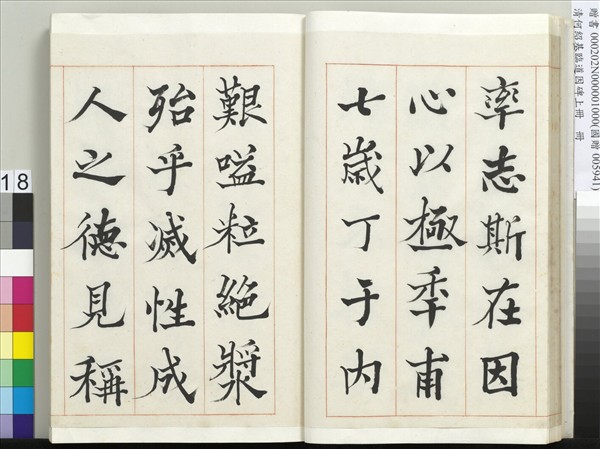 率志斯在因
心以極秊甫
七歲丁于内
艱嗌粒絕漿
殆乎滅性成
人之德見稱
贈書 000202N000001000(國贈 005941)
清何紹基臨道因碑上冊 冊
18